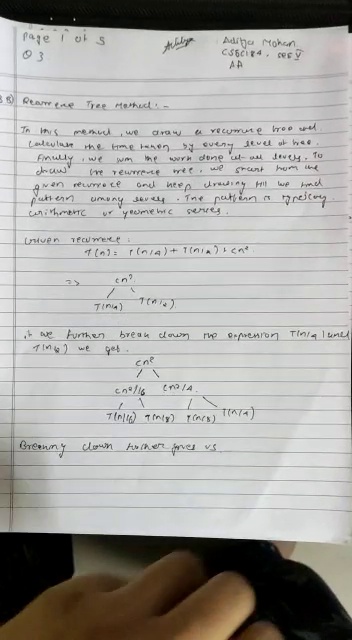 Page 1 of 5
Aditya Mohan
Q 3
CSEC184. sec V
AA
Recurrence Tree Method: -
In this method, we draw a recurrence tree and
calculate the time taken by every level of tree.
Finally, we sum the work done at all levels. To
draw the recurrence tree, we start from the
given recurrence and keep drawing till we find
pattern among levels. The pattern is typically
arithmetic or geometric series.
Given recurrence:
T(n) = T(n/4) + T(n/2) + cn²
=> cn²
T(n/4) T(n/2)
if we further break down the expression T(n/4) and
T(n/2) we get.
cn²
cn²/16 cn²/4
T(n/16) T(n/8) T(n/8) T(n/4)
Breaking down further gives us